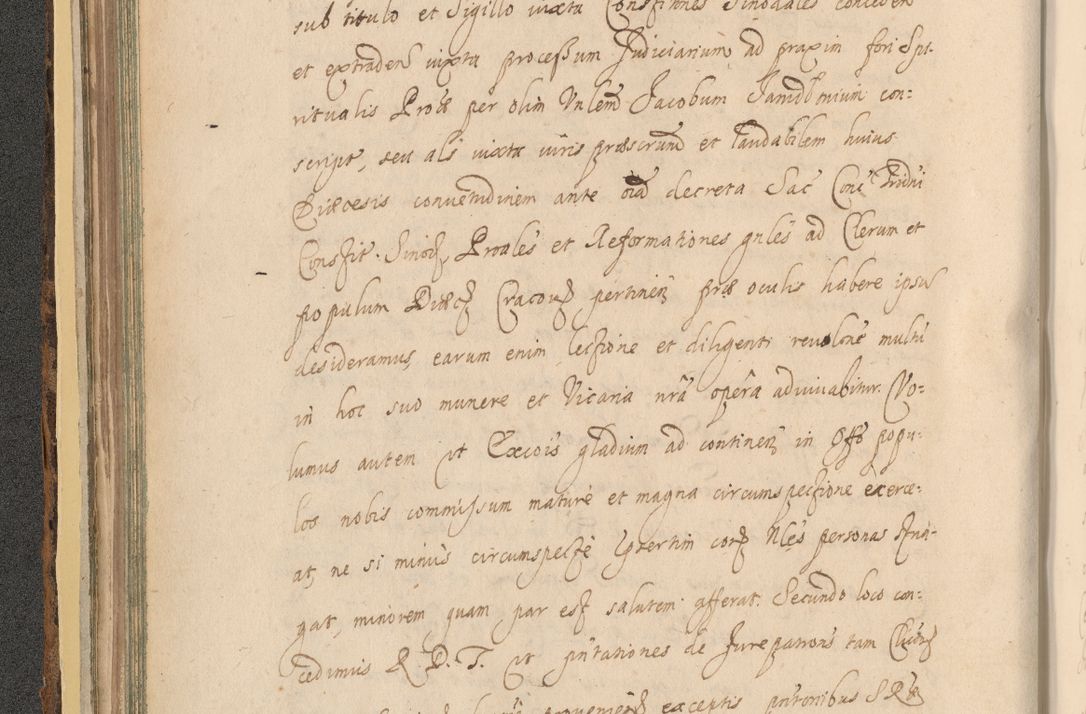 sub titulo et Sigillo iuxta Constitnes Sinodales conceden
et extraden iuxta processum Judiciarium ad praxim fori Spi-
ritualis Proae per olim Vnlem Jacobum Janid mium con:
script, seu als iuxta iuris praescrum et laudabilem huius
Diaecesis consuetudinem ante oia decreta Sac Conc Tridni
Constit. Sinod, Proales et Reformationes gnles ad Clerum et
populum Diaec Cracov pertinen prae oculis habere ipsu
desideramus, earum enim lectione et diligenti revolone multu
in hoc suo munere et Vicaria nra opera adiuvabitur. Vo:
lumus autem ut Excois gladium ad continen in Offo popu:
los nobis commissum mature et magna circumspectione exerce:
at, ne si minus circumspecte psertim cor Nles personas stria-
gat, minorem quam par est salutem afferat. Secundo loco con-
cedimus R. D. T. ut pntationes de Jurepatrons tam Cleric
convenien exceptis pntonibus S R